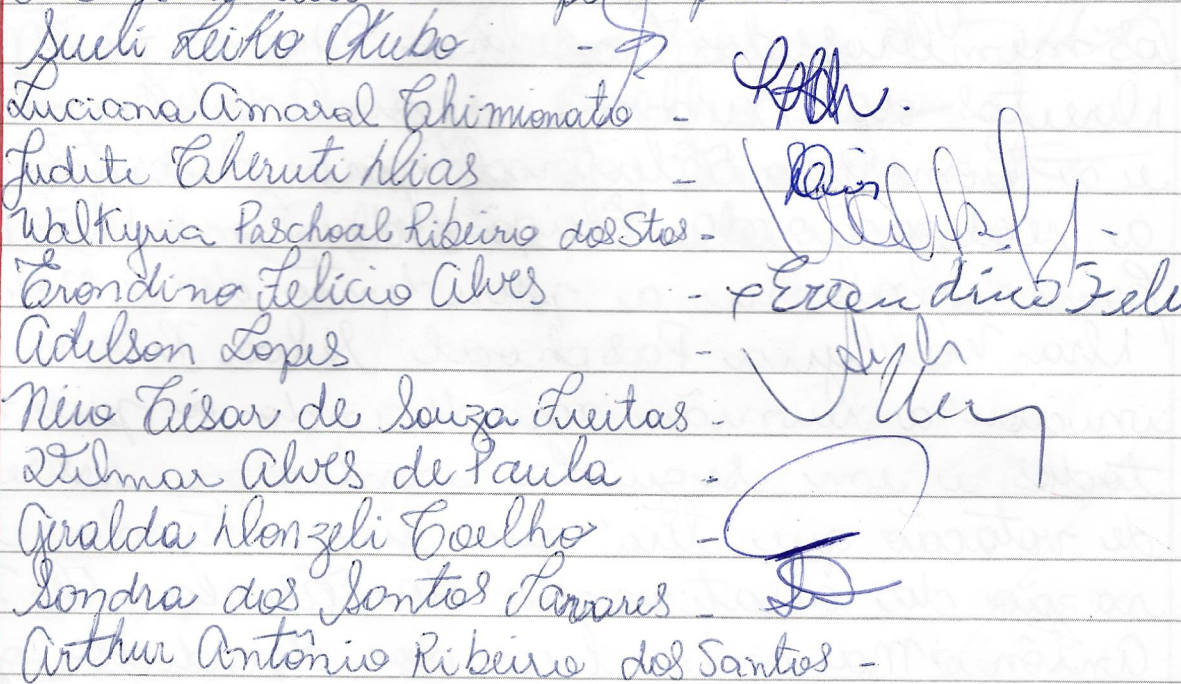 Sueli Leiko Okubo -
Luciana Amaral Chimionato -
Judite Cheruti Dias -
Walkyria Paschoal Ribeiro dos Stos -
Erondino Felicio Alves - Erondino Feli
Adilson Lopes -
Nivo César de Souza Freitas -
Vilmar Alves de Paula -
Geralda Donzeli Coelho -
Sondra dos Santos Tavares -
Arthur Antônio Ribeiro dos Santos -